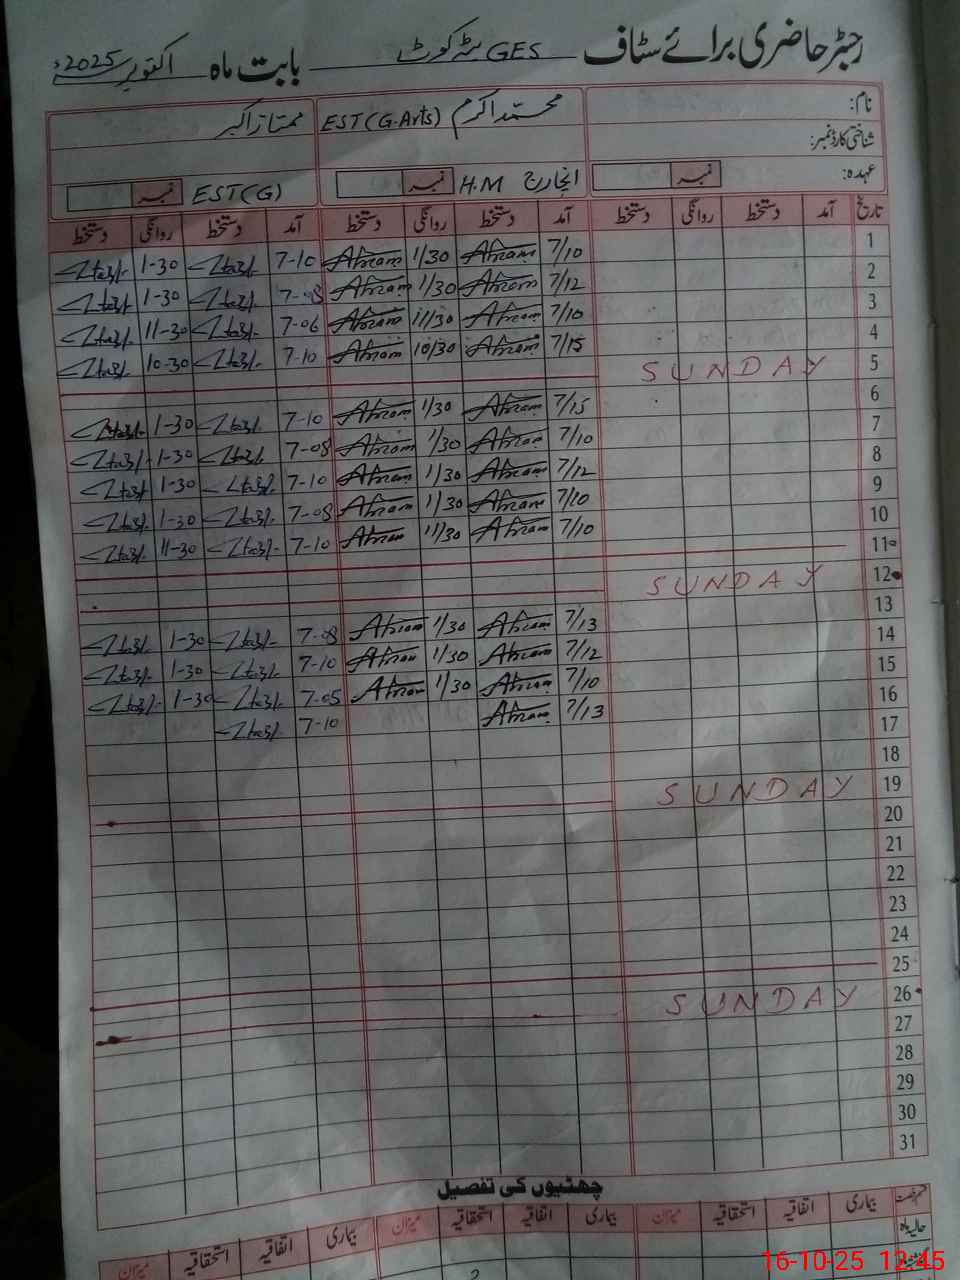 رجسٹر حاضری برائے سٹاف GES بابت ماہ اکتوبر 2025ء
نام: محمد اکرم EST (G.Arts) ممتاز اکبر
شناختی کارڈ نمبر:
عہدہ: نمبر انچارج H.M نمبر EST(G) نمبر
تاریخ آمد دستخط روانگی دستخط آمد دستخط روانگی دستخط آمد دستخط روانگی دستخط
1 7/10 Akram 1/30 Akram 7-10 1-30
2 7/12 Akram 1/30 Akram 7-08 1-30
3 7/10 Akram 11/30 Akram 7-06 11-30
4 7/15 Akram 10/30 Akram 7-10 10-30
5 SUNDAY
6 7/15 Akram 1/30 Akram 7-10 1-30
7 7/10 Akram 1/30 Akram 7-08 1-30
8 7/12 Akram 1/30 Akram 7-10 1-30
9 7/10 Akram 1/30 Akram 7-08 1-30
10 7/10 Akram 11/30 Akram 7-10 11-30
11
12 SUNDAY
13 7/13 Akram 1/30 Akram 7-08 1-30
14 7/12 Akram 1/30 Akram 7-10 1-30
15 7/10 Akram 1/30 Akram 7-05 1-30
16 7/13 Akram 7-10
17
18
19 SUNDAY
20
21
22
23
24
25
26 SUNDAY
27
28
29
30
31
چھٹیوں کی تفصیل
قسم رخصت بیماری اتفاقیہ استحقاقیہ میزان بیماری اتفاقیہ استحقاقیہ میزان بیماری اتفاقیہ استحقاقیہ میزان
حالیہ ماہ
2
16-10-25 12:45